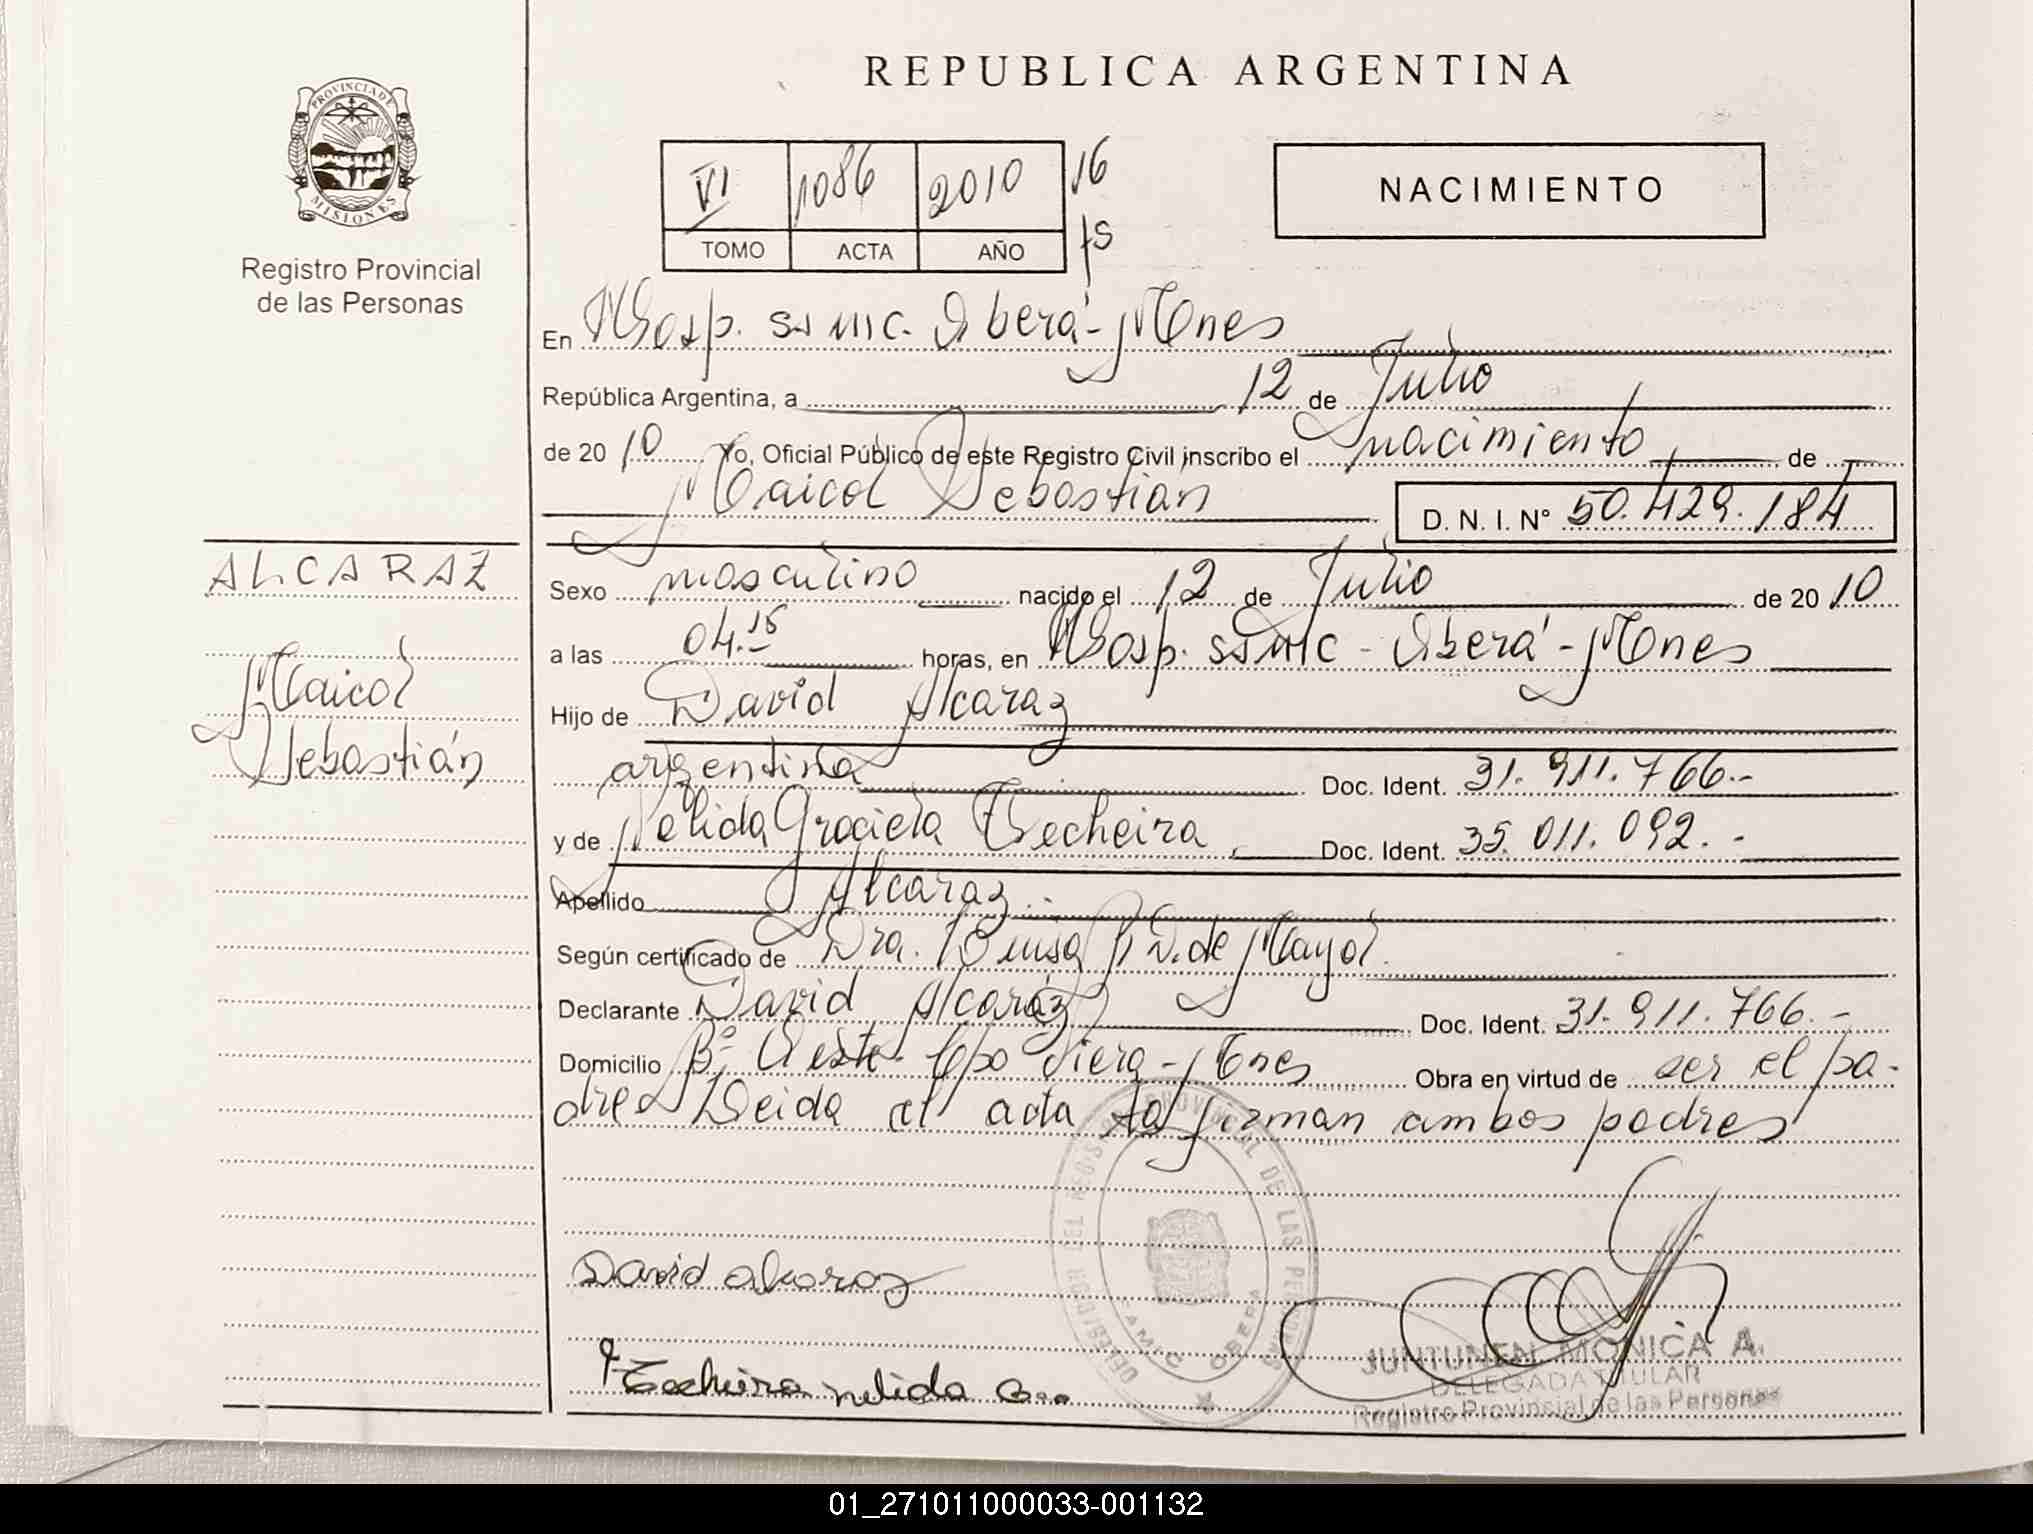 REPUBLICA ARGENTINA
PROVINCIA DE
MISIONES
Registro Provincial
de las Personas
VI 1086 2010 16
TOMO ACTA AÑO fs
NACIMIENTO
En Hosp. SAMIC. Oberá - Mnes
República Argentina, a 12 de Julio
de 2010 Yo, Oficial Público de este Registro Civil inscribo el nacimiento de
Maicol Sebastian D. N. I. Nº 50.429.184
ALCARAZ
Maicol
Sebastián
Sexo masculino nacido el 12 de Julio de 2010
a las 04.15 horas, en Hosp. SAMIC - Oberá - Mnes
Hijo de David Alcaraz
argentina Doc. Ident. 31.911.766.-
y de Nelida Graciela Techeira, Doc. Ident. 35.011.092.-
Apellido Alcaraz.
Según certificado de Dra. de Mayol.
Declarante David Alcaraz Doc. Ident. 31.911.766.-
Domicilio Bº Oeste Cpo Viera - Mnes Obra en virtud de ser el pa-
dre Leida el acta la firman ambos padres
David alcaraz
Techeira nelida
DELEGACION DEL REGISTRO PROVINCIAL DE LAS PERSONAS
SAMIC OBERA
JUNTUNEN MONICA A.
DELEGADA TITULAR
Registro Provincial de las Personas
01_271011000033-001132